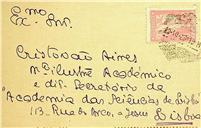 Exmo
Ex. Snr.
Cristovão Aires
M. Ilustre Académico
e dig. Secretário da
"Academia das Sciências de Lisbôa
113, Rua do Arco, a Jesus
Lisboa